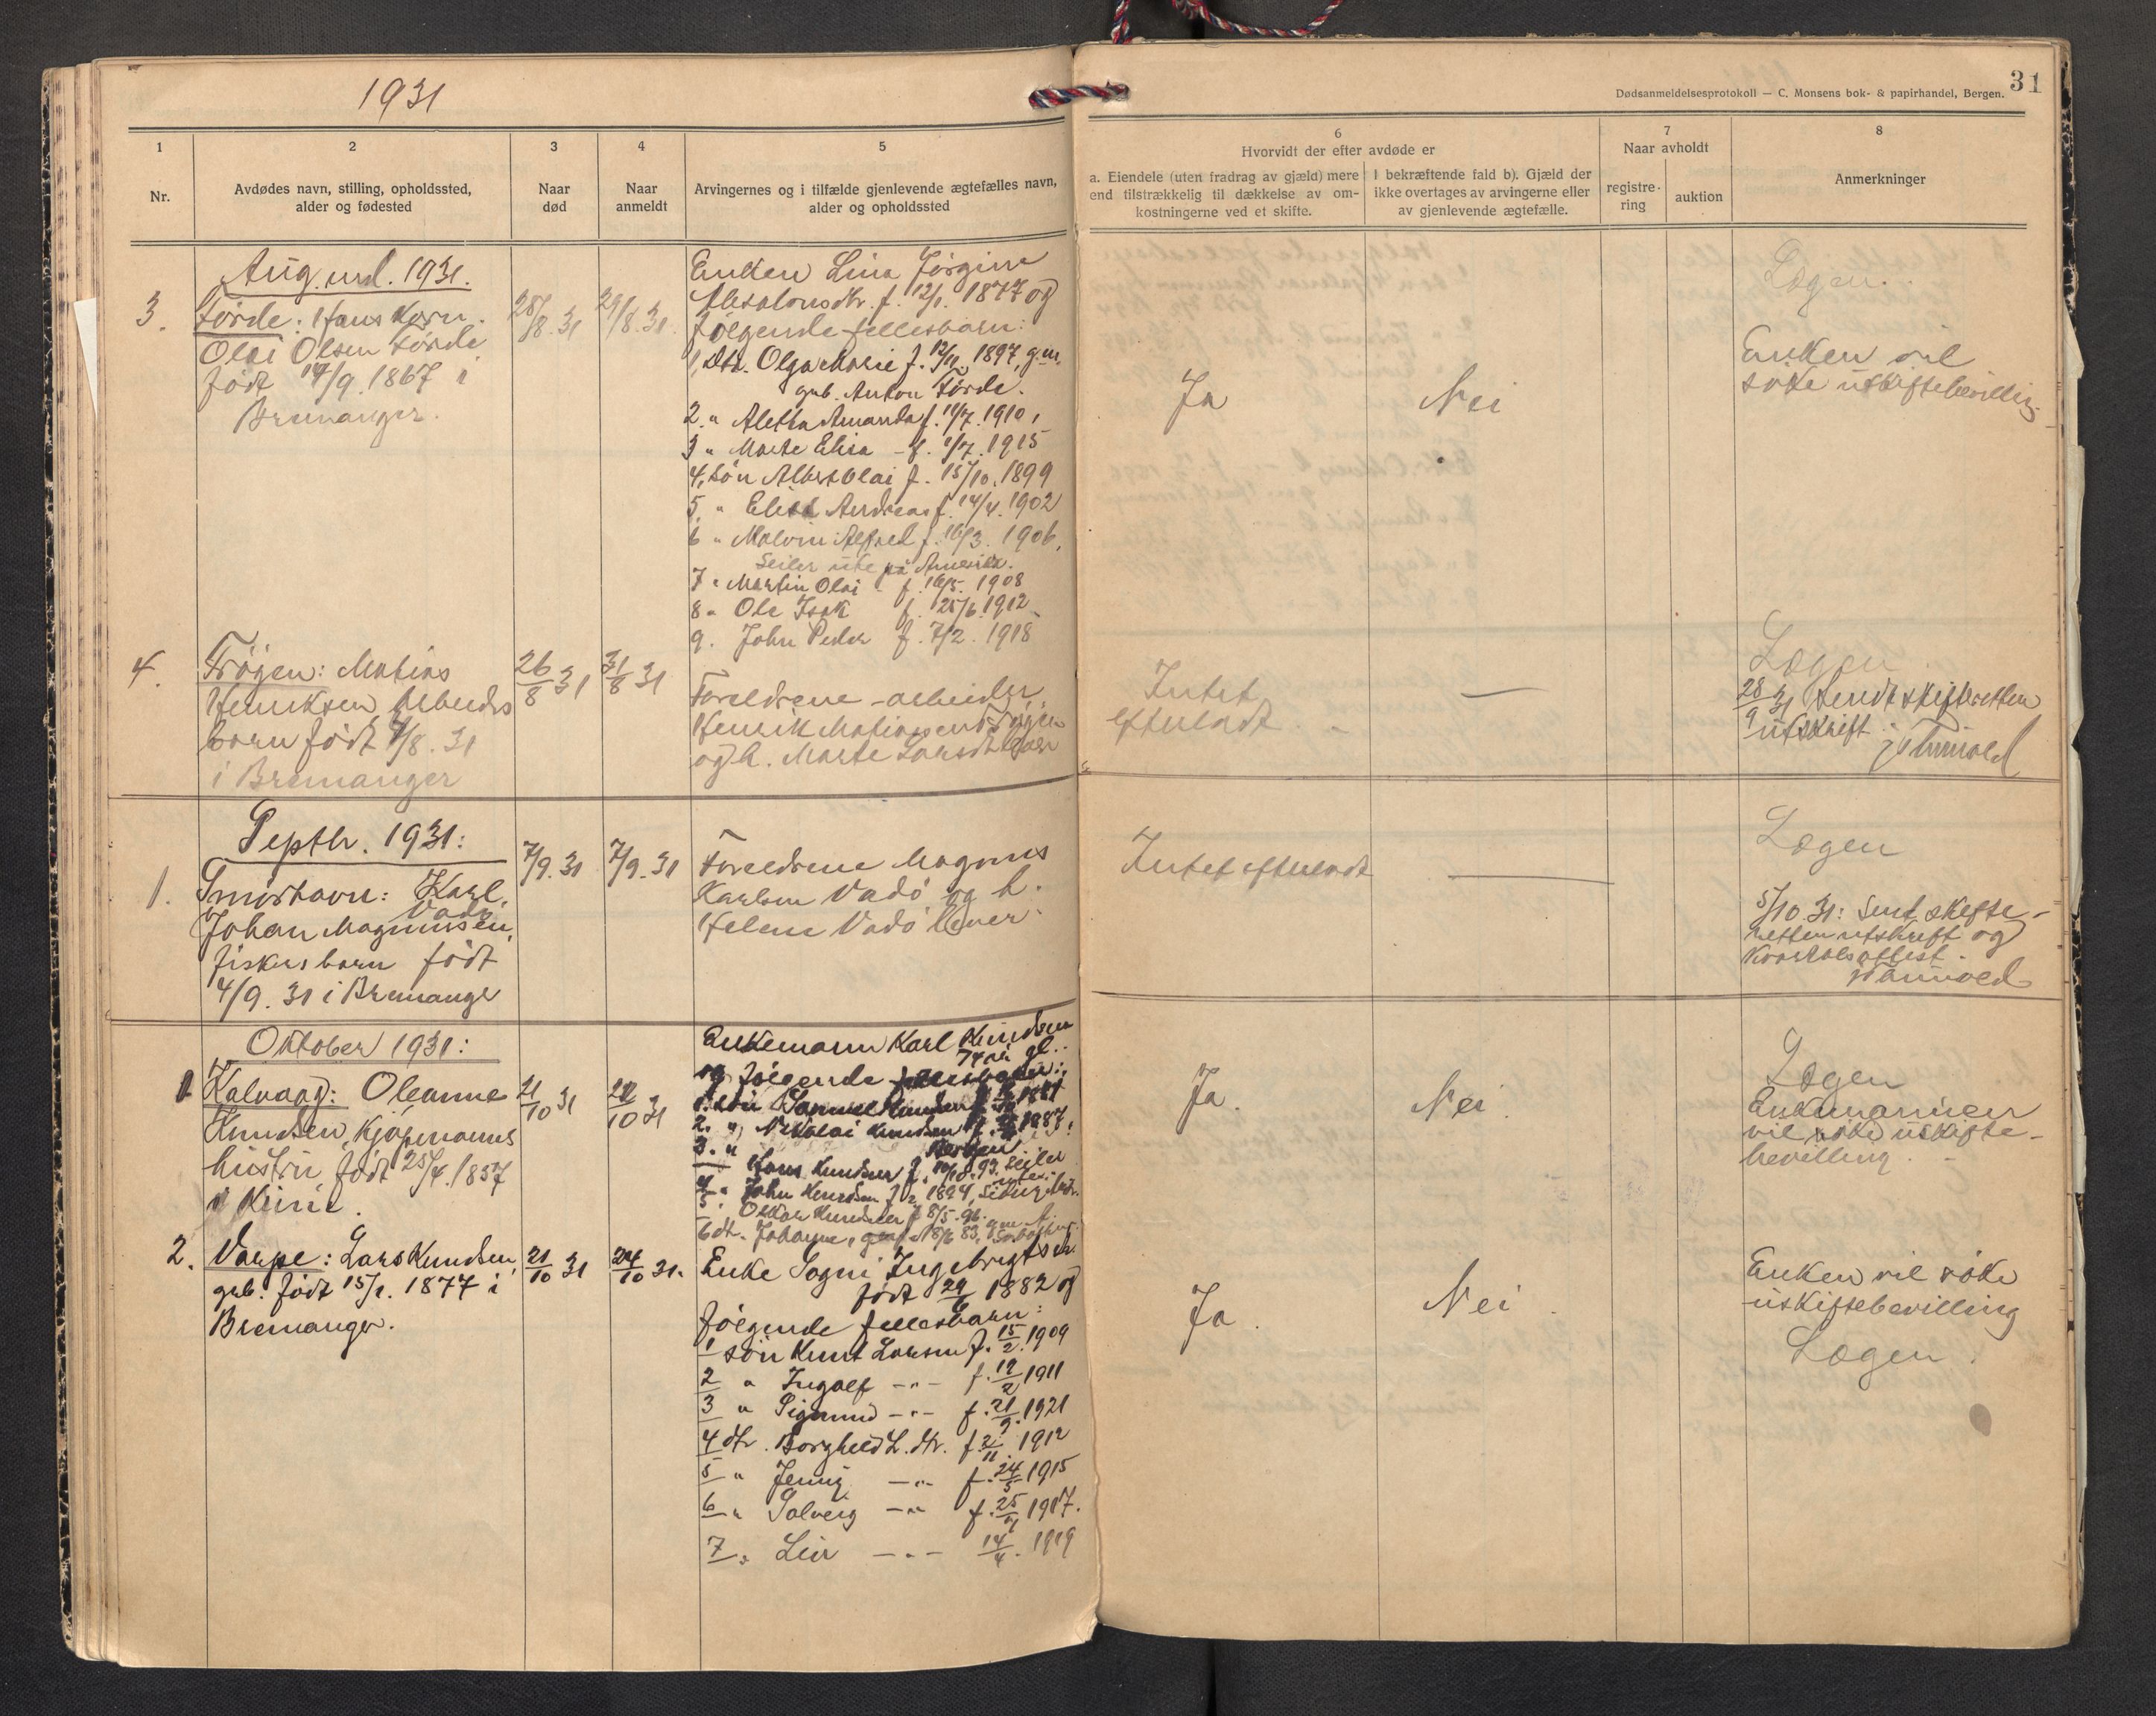 1931
31
Dødsanmeldelsesprotokoll — C. Monsens bok- & papirhandel, Bergen.
1
Nr.
2
Avdødes navn, stilling, opholdssted,
alder og fødested
3
Naar
død
4
Naar
anmeldt
5
Arvingernes og i tilfælde gjenlevende ægtefælles navn,
alder og opholdssted
6
Hvorvidt der efter avdøde er
a. Eiendele (uten fradrag av gjæld) mere
end tilstrækkelig til dækkelse av om-
kostningerne ved et skifte.
I bekræftende fald b). Gjæld der
ikke overtages av arvingerne eller
av gjenlevende ægtefælle.
7
Naar avholdt
registre-
ring
auktion
8
Anmerkninger
Aug. md. 1931.
3.
Förde: Hans Korn.
Olai Olsen Förde
född 14/9. 1867 i
Bremanger.
28/8. 31
29/8. 31.
Enken Lina Jörgine
Absalonsdtr. f. 12/1. 1877 og
følgende fellesbarn:
1, Dtr. Olga Marie f. 12/11 1897, g.m.
gub. Anton Förde.
2. " Aletha Amanda f. 10/7. 1910,
3 " Marte Elisa - f. 1/7. 1915
4, sön Albert Olai f. 15/10. 1899
5. " Elias Andreas f. 14/4. 1902
6 " Malvin Alfred f. 16/3. 1906,
Seiler ute på Amerika.
7 " Martin Olai - f. 16/5. 1908
8 " Ole Isak f. 25/6. 1912
9. John Peder f. 7/2. 1918
Ja
Nei
Lægen.
Enken vil
söke uskiftebevilling
4.
Fröyen: Matias
Henriksen Arbeids
barn födt 7/8. 31
i Bremanger
26/8 31
31/8 31
Foreldrene - arbeider
Henrik Matiassen Fröyen
og h. Marte Larsdtr lever
Intet
efterladt
—
Lægen
28/9 31 Sendt skifteretten
utskrift.
Septbr. 1931:
1.
Smörhavn: Karl
Vadö
Johan Magnussen,
fiskers barn født
4/9. 31 i Bremanger
7/9. 31
7/9. 31
Foreldrene Magnus
Karlsen Vadö og h.
Helene Vadö lever.
Intet efterladt
—
Lægen
5/10 31: Sent skifte-
retten utskrift og
Kvartalsattest.
Oktober 1931:
1
Kalvaag: Oleanne
Knudsen, kjøpmanns
hustru, født 25/4. 1857
i Kinn.
21/10 31
21/10 31
Enkemann Karl Knudsen
74 år gl.
og følgende fellesbarn:
1. sön Samuel Knudsen 1881
2. " Nikolai Knudsen 1887,
Bergen
3. " Hans Knudsen f. 10/10. 93. Seiler
4 " John Knudsen 1894,
5. Oskar Knudsen f 8/5. 96.
6 dtr. Johanne, 18/6 83,
Ja.
Nei
Lægen
Enkemannen
vil söke uskifte-
bevilling.
2.
Varpe: Lars Knudsen,
gub. født 15/1. 1877 i
Bremanger.
21/10 31
24/10 31.
Enke Sogni Ingebrigtsdtr.
født 29/6 1882 og
følgende fellesbarn:
1 sön Knut Larsen f. 15/2. 1909
2 " Ingolf -"- f. 12/2 1911
3 " Sigmund -"- f. 21/9. 1921
4 dtr. Borghild L. dtr. f. 2/11. 1912
5 " Jenny -"- f. 24/5 1915
6 " Solveig -"- f. 25/7 1917.
7 " Liv -"- 14/4. 1919
Ja.
Nei.
Enken vil söke
uskiftebevilling
Lægen.